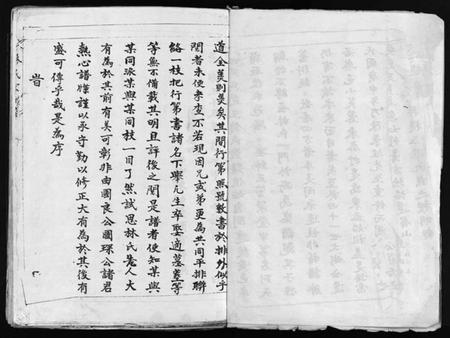 道金美則美矣其間行第照號數書於排外似乎
閱者未便考查不若現因兄或弟更為共同平排聯
絡一枝把行第書諸名下舉凡生卒娶適墓葬等
等無不備載其明且詳後之閱是譜者便知某與
某同派某與某同枝一目了然試思林氏先人大
有為於其前有美可彰非由國良公國琛公諸君
熱心譜牒謹以永守勤以修正大有為於其後有
盛可傳乎哉是為序
旹